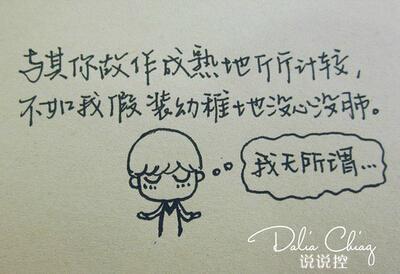 与其你故作成熟地斤斤计较，
不如我假装幼稚地没心没肺。
我无所谓...
Dalia Chiaq
说说控